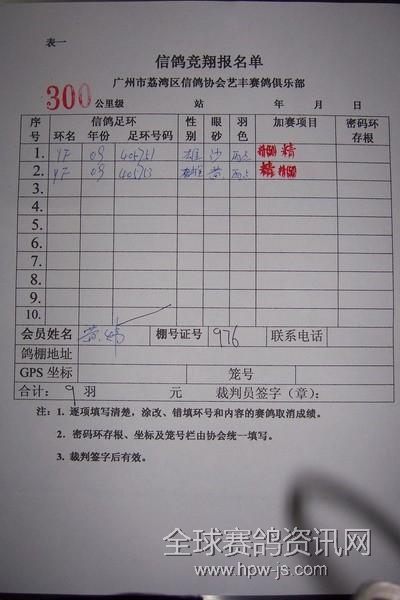 表一
信鸽竞翔报名单
广州市荔湾区信鸽协会艺丰赛鸽俱乐部
300公里级 站 年 月 日
序号 信鸽足环 性别 眼砂 羽色 加赛项目 密码环存根
环名 年份 足环号码
1. YF 09 405751 雄 沙 雨点 精
2. YF 09 405713 雄 黄 雨点 精
3.
4.
5.
6.
7.
8.
9.
10.
会员姓名 棚号证号 976 联系电话
鸽棚地址
GPS 坐标 笼号
合计: 羽 元 裁判员签字(章):
注: 1. 逐项填写清楚,涂改、错填环号和内容的赛鸽取消成绩。
2. 密码环存根、坐标及笼号栏由协会统一填写。
3. 裁判签字后有效。
全球赛鸽资讯网
www.hpw-js.com